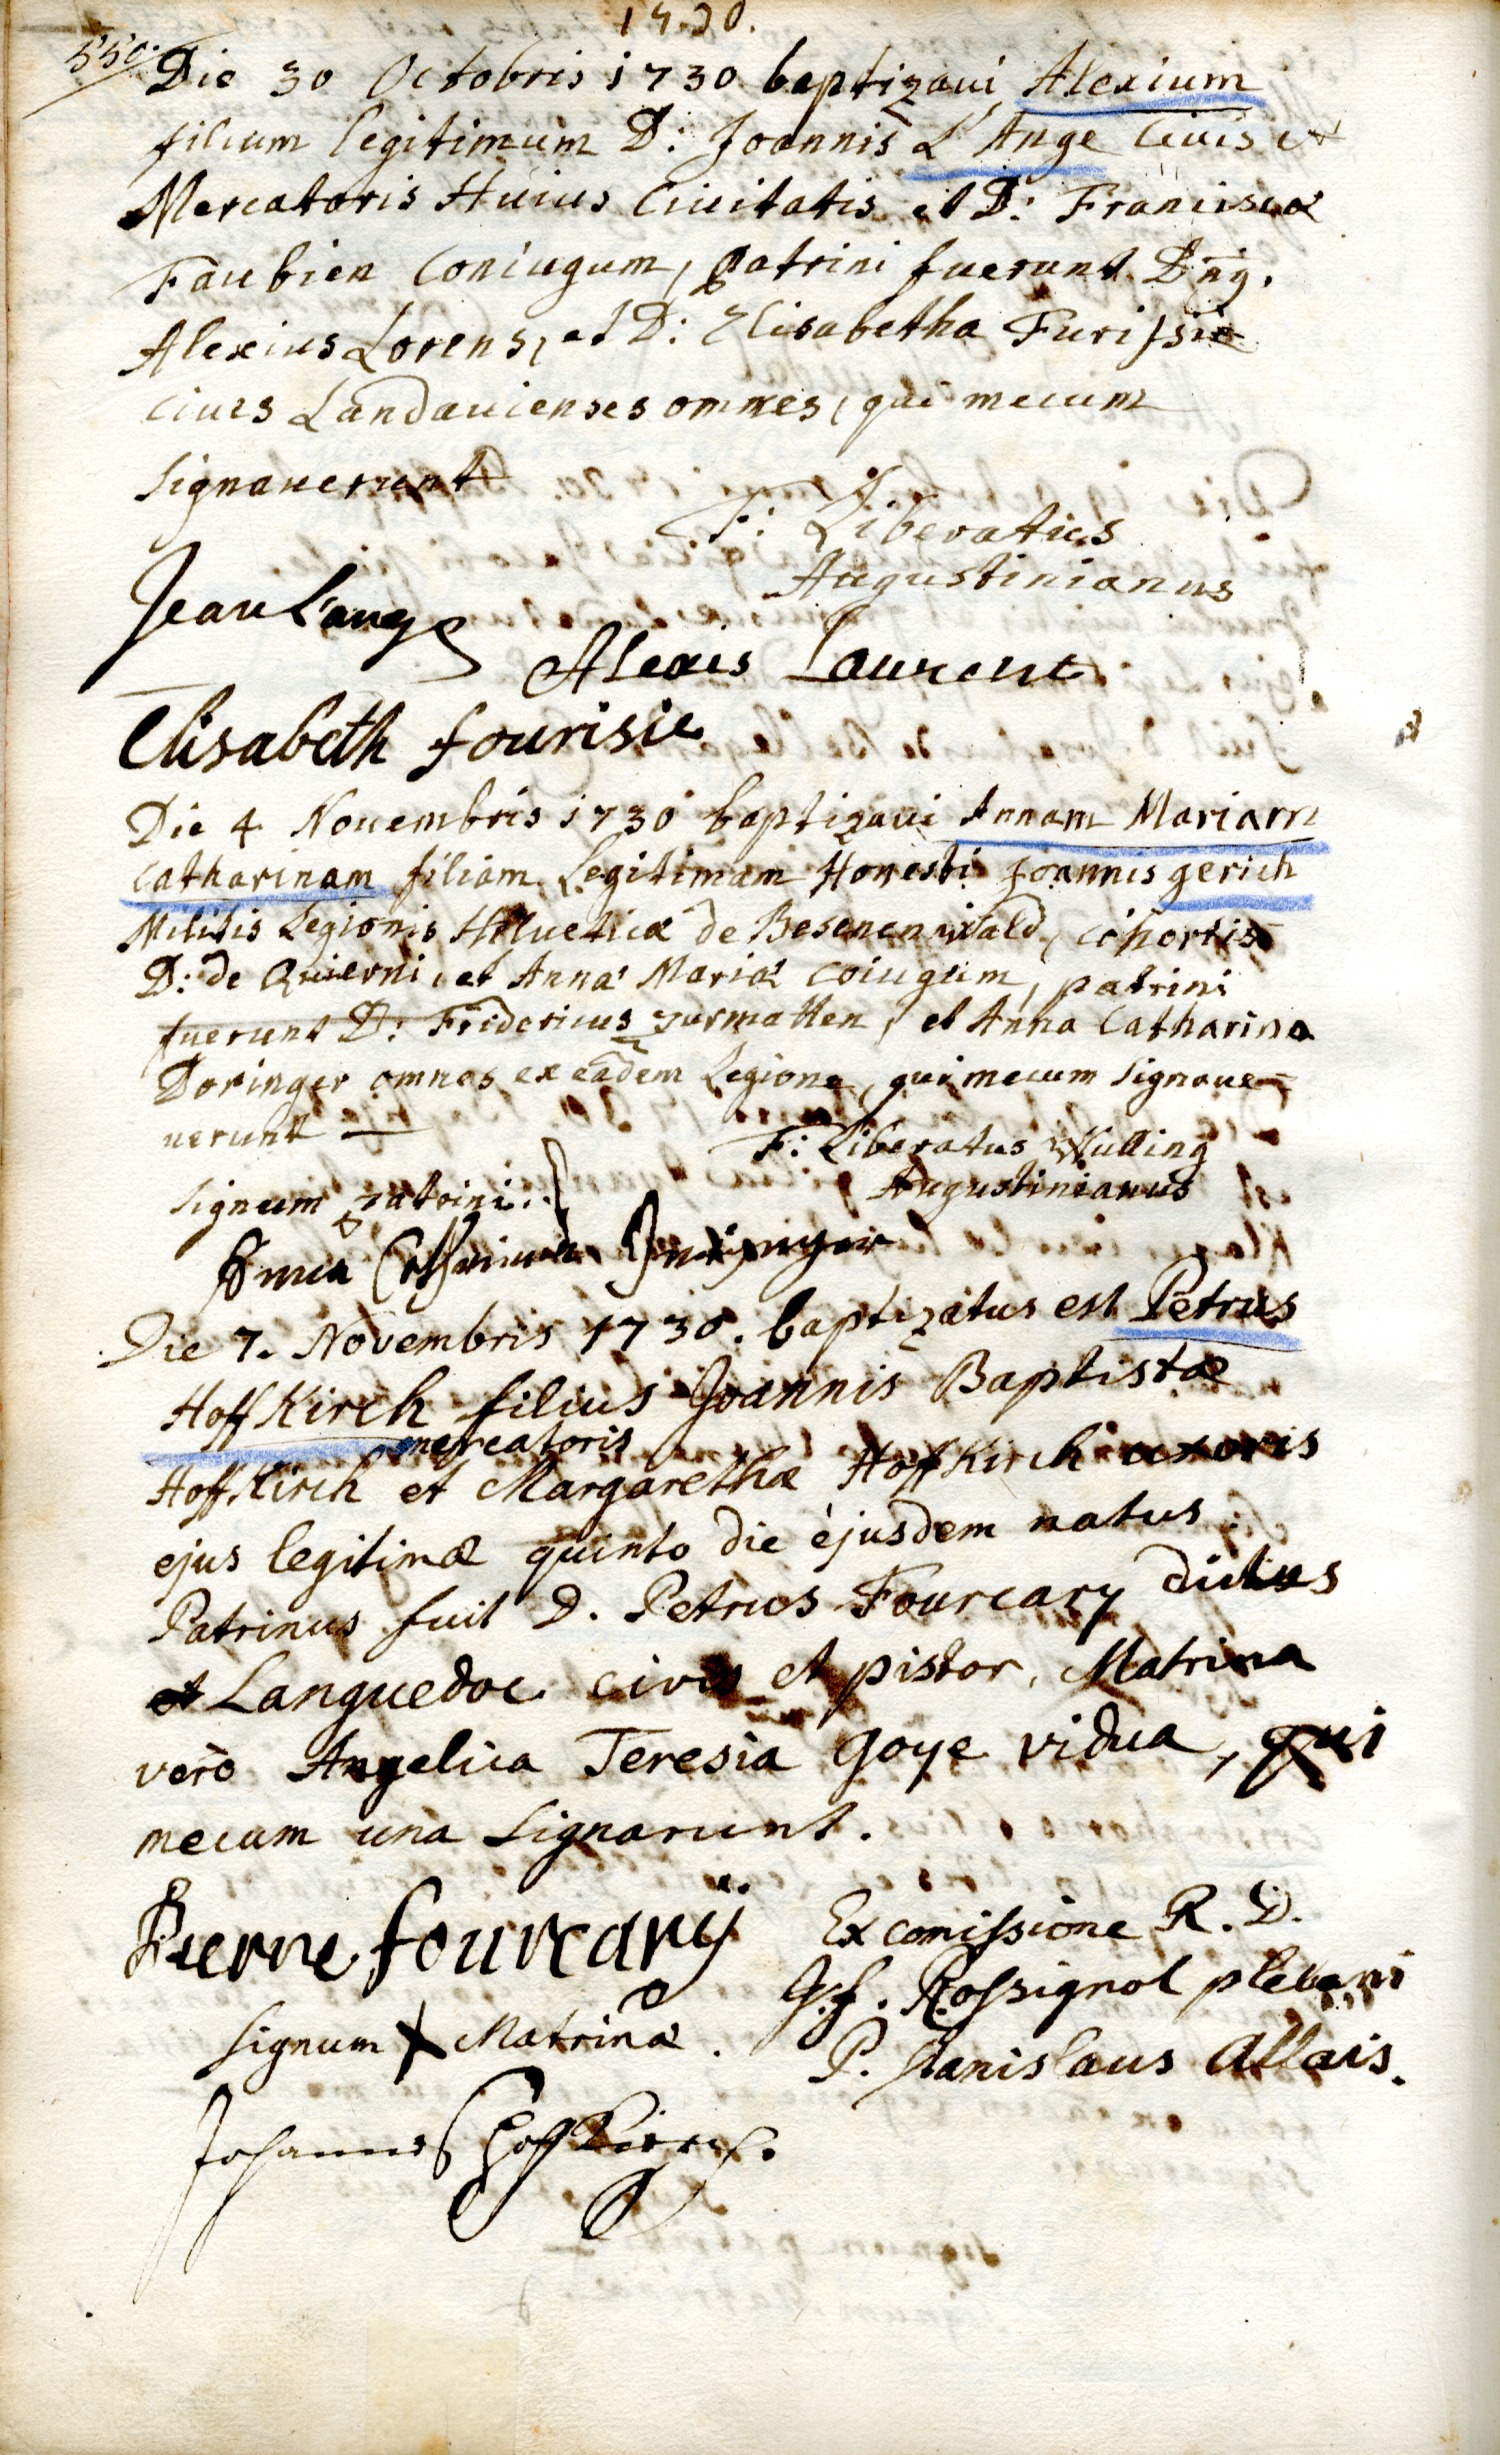 1730.
550.
Die 30 Octobris 1730 baptizaui Alexium
filium legitimum D: Joannis L'Ange Ciuis et
Mercatoris Huius Ciuitatis et D: Franciscæ
Faubien Coniugum, patrini fuerunt Dn9.
Alexius Lorens, et D: Elisabetha Furissie
Ciues Landauienses omnes, qui mecum
signauerunt
F: Liberatus
Augustinianus
Jean Lange
Alexis Laurent
Elisabeth fourisie
Die 4 Nouembris 1730 baptizaui Annam Mariam
Catharinam filiam Legitimam Honesti Joannis gerich
Militis Legionis Helueticæ de Besenenwald, cohortis
D: de Quierni, et Annæ Mariæ coiugum, patrini
fuerunt D: Fridericus zurmatten, et Anna Catharina
Doringer omnes ex eadem Legione, qui mecum signaue-
uerunt
F: Liberatus Wulling
Augustinianus
signum patrini..
Anna Catharina
Die 7. Novembris 1730. baptizatus est Petrus
Hoffkirch filius Joannis Baptistæ
mercatoris
Hoffkirch et Margarethæ Hoffkirch uxoris
ejus legitimæ quinto die ejusdem natus.
Patrinus fuit D. Petrus Fourcary dictus
et Languedoc civis et pistor, Matrina
vero Angelica Teresia Goye vidua, qui
mecum una signarunt.
Pierre fourcary
Ex comissione R. D.
J. f. Rossignol plebani
signum X Matrinæ.
P. Stanislaus Allais.
Johannes Hoffkirch.